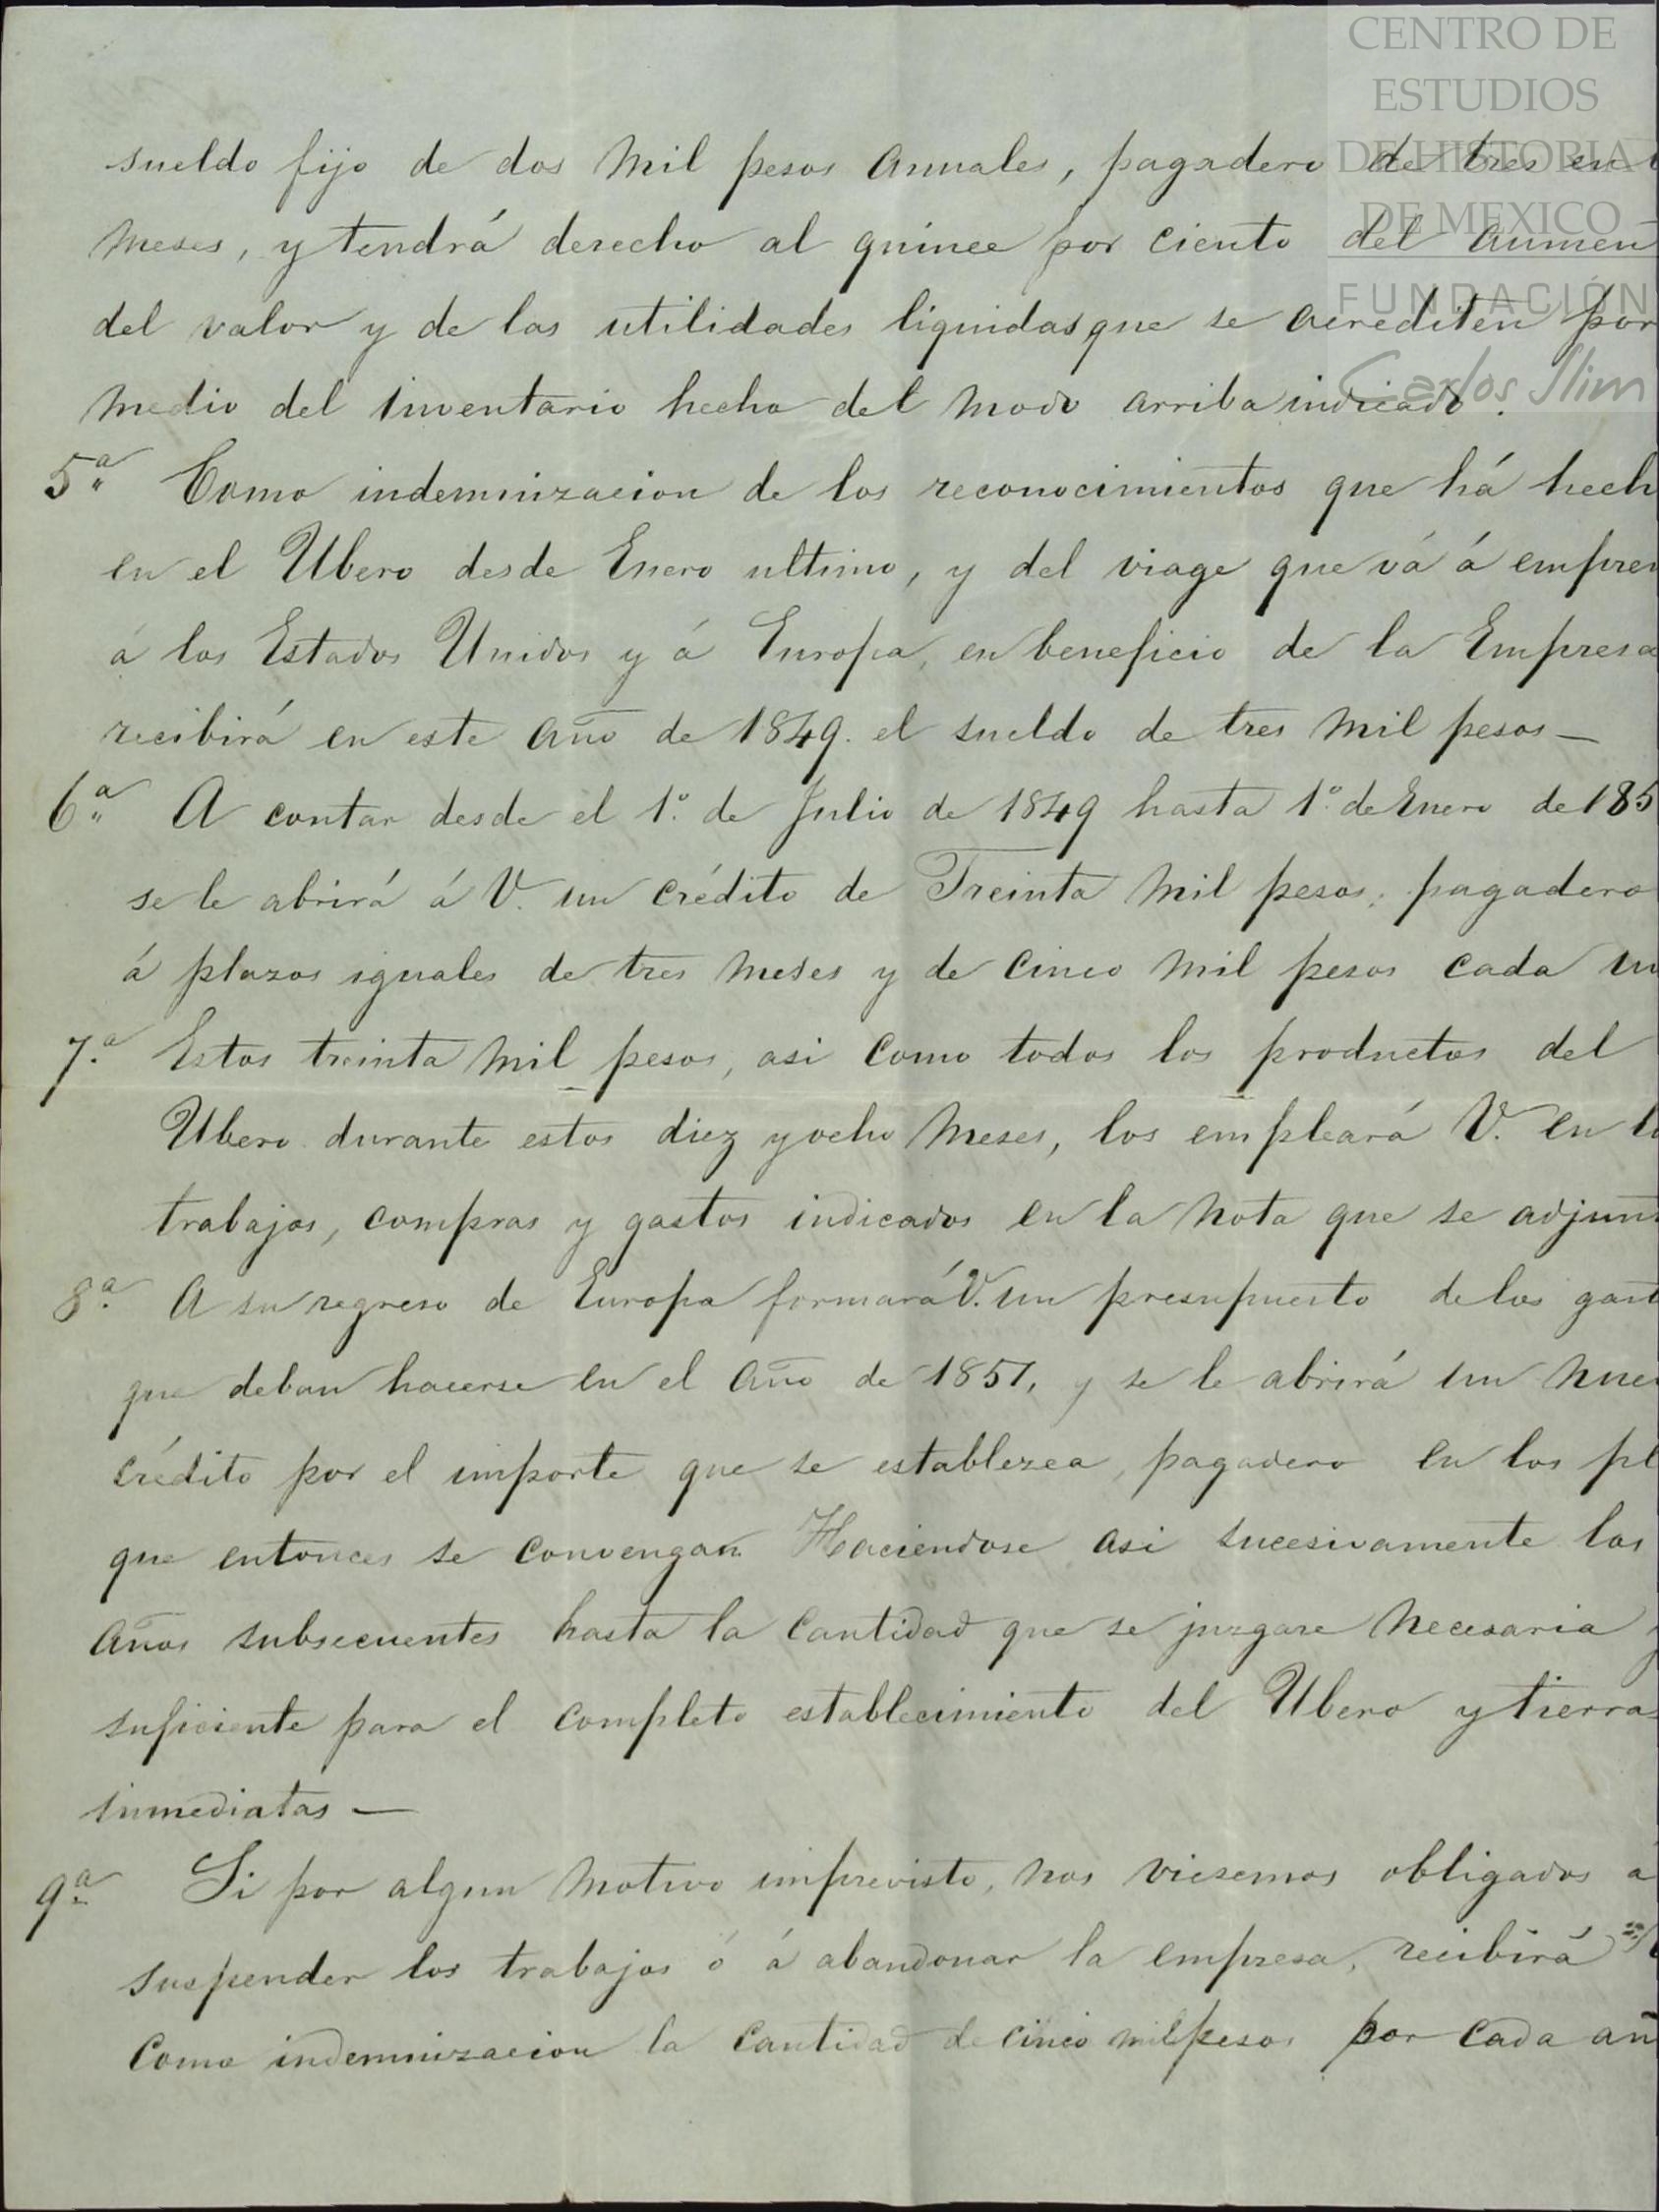 CENTRO DE
ESTUDIOS
DE HISTORIA
DE MEXICO
FUNDACIÓN
Carlos Slim
sueldo fijo de dos mil pesos anuales, pagadero de tres en
meses, y tendrá derecho al quince por ciento del aumen
del valor y de las utilidades liquidas que se acrediten por
medio del inventario hecho del modo arriba indicado.
5ª Como indemnizacion de los reconocimientos que há hech
en el Ubero desde Enero ultimo, y del viage que vá á empren
á los Estados Unidos y á Europa, en beneficio de la Empresa
recibirá en este año de 1849. el sueldo de tres mil pesos —
6ª A contar desde el 1º. de Julio de 1849 hasta 1º. de Enero de 185
se le abrirá á V. un crédito de Treinta mil pesos, pagadero
á plazos iguales de tres meses y de cinco mil pesos cada un
7.ª Estos treinta mil pesos, asi como todos los productos del
Ubero durante estos diez y ocho meses, los empleará V. en lo
trabajos, compras y gastos indicados en la nota que se adjun
8.ª A su regreso de Europa formará V. un presupuesto de los gast
que deban hacerse en el año de 1851, y se le abrirá un nue
crédito por el importe que se establezca, pagadero en los pl
que entonces se convengan Haciendose asi sucesivamente los
años subsecuentes hasta la cantidad que se juzgare necesaria y
suficiente para el completo establecimiento del Ubero y tierras
inmediatas —
9ª Si por algun motivo imprevisto, nos viesemos obligados a
suspender los trabajos ó á abandonar la empresa, recibirá
como indemnizacion la cantidad de cinco mil pesos por cada añ